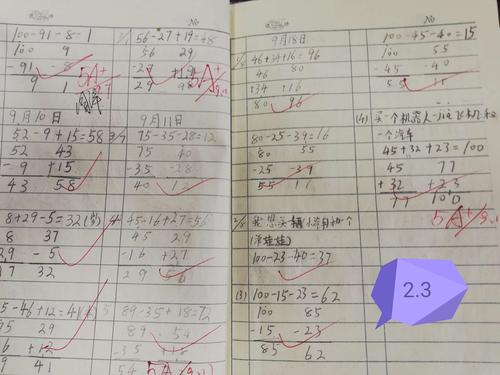 No
100-91-8=1
100 9
-91 -8
9 1
5A+
9月10日
52-9+15=58
52 43
-9 +15
43 58
8+29-5=32
8 37
-5
37 32
-46+12=41
95 29
+12
41
56-27+19=48
56 29
-27 +19
29
5A+
9月11日
75-35-28=12
75 40
-35 -28
40 1
45-16+27=56
45 29
-16 +27
29 56
89-35+18=72
89 54
-35
54
No
9月18日
46+34+16=96
46 80
+34 +16
80 96
80-25-39=16
80 55
-25 -39
55 16
100-23-40=37
(3) 100-15-23=62
100 85
-15 -23
85 62
100-45-40=15
100 55
-45 -40
55 15
(4) 买一个机器人
一个汽车
45+32+23=100
45 77
+32 +23
77 100
5A+
2.3